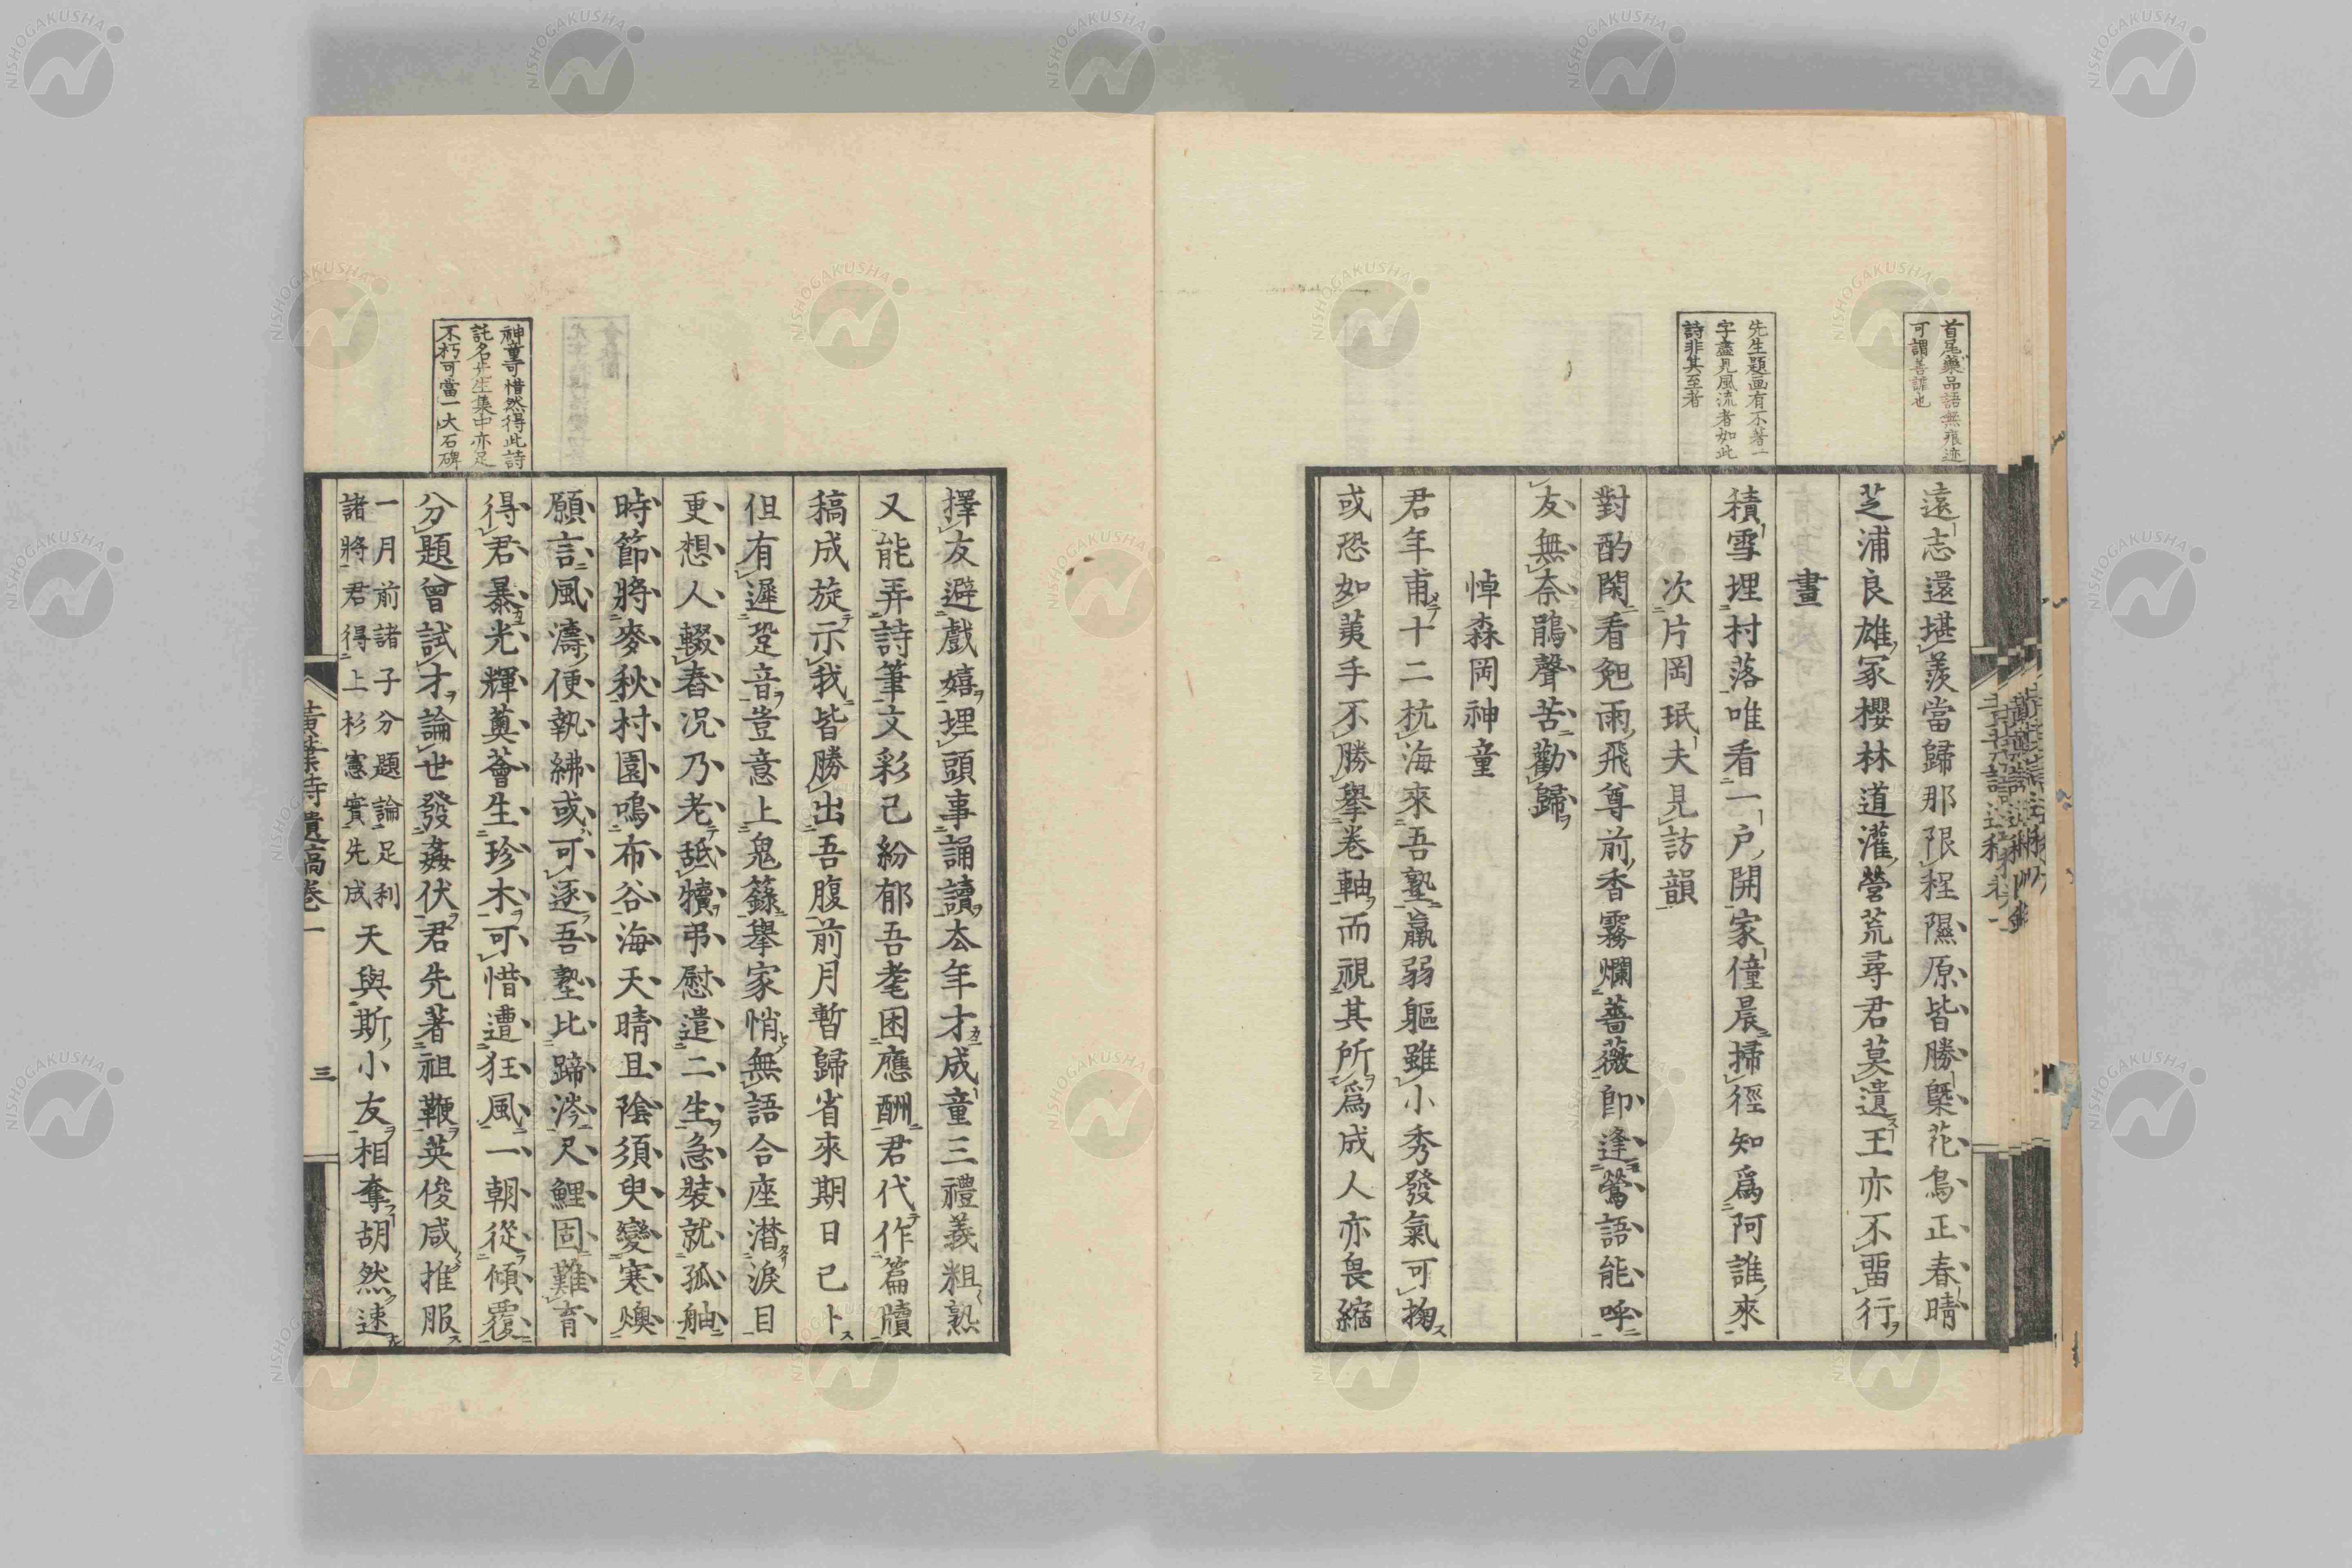 首尾藥品語無痕迹
可謂善謔也
先生題画有不著一
字盡見風流者如此
詩非其至者
遠志還堪羨當歸那限程隰原皆勝槩花鳥正春晴
芝浦良雄冢櫻林道灌營荒尋君莫遺王亦不畱行
畫
積雪埋村落唯看一戶開家僮晨掃徑知爲阿誰來
次片岡珉夫見訪韻
對酌閑看兔雨飛尊前香霧爛薔薇卽逢鶯語能呼
友無奈鵑聲苦勸歸
悼森岡神童
君年甫十二杭海來吾塾羸弱軀雖小秀發氣可掬
或恐如荑手不勝擧卷軸而視其所爲成人亦畏縮
神童可惜然得此詩
託名先生集中亦足
不朽可當一大石碑
擇友避戲嬉埋頭事誦讀太年才成童三禮義粗熟
又能弄詩筆文彩已紛郁吾耄困應酬君代作篇牘
稿成旋示我皆勝出吾腹前月暫歸省來期日已卜
但有遲跫音豈意上鬼籙擧家悄無語合座潛淚目
更想人輟舂況乃老舐犢弔慰遣二生急裝就孤舳
時節將麥秋村園鳴布谷海天晴且陰須臾變寒燠
願言風濤便執紼或可逐吾塾比蹄涔尺鯉固難育
得君暴光輝奠薈生珍木可惜遭狂風一朝從傾覆
分題曾試才論世發姦伏君先著祖鞭英俊咸推服
一月前諸子分題論足利
諸將君得上杉憲實先成
天與斯小友相奪胡然速
黃葉詩遺稿卷一
三
NISHOGAKUSHA